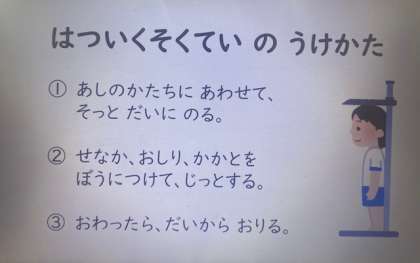 はついくそくてい の うけかた
① あしのかたちに あわせて、
そっと だいに のる。
② せなか、おしり、かかとを
ぼうにつけて、じっとする。
③ おわったら、だいから おりる。